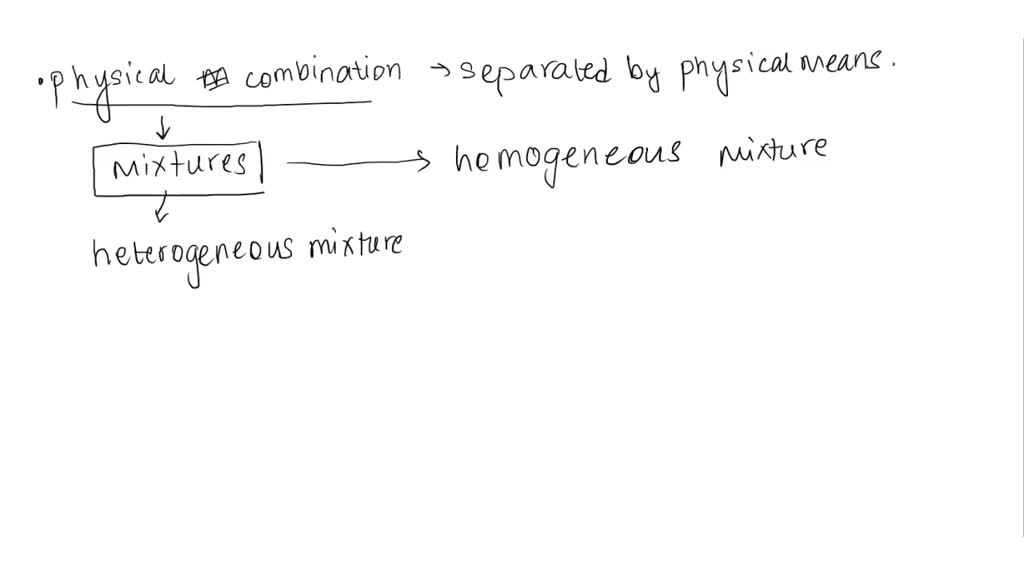 • physical combination → separated by physical means.
↓
mixtures → homogeneous mixture
↓
heterogeneous mixture